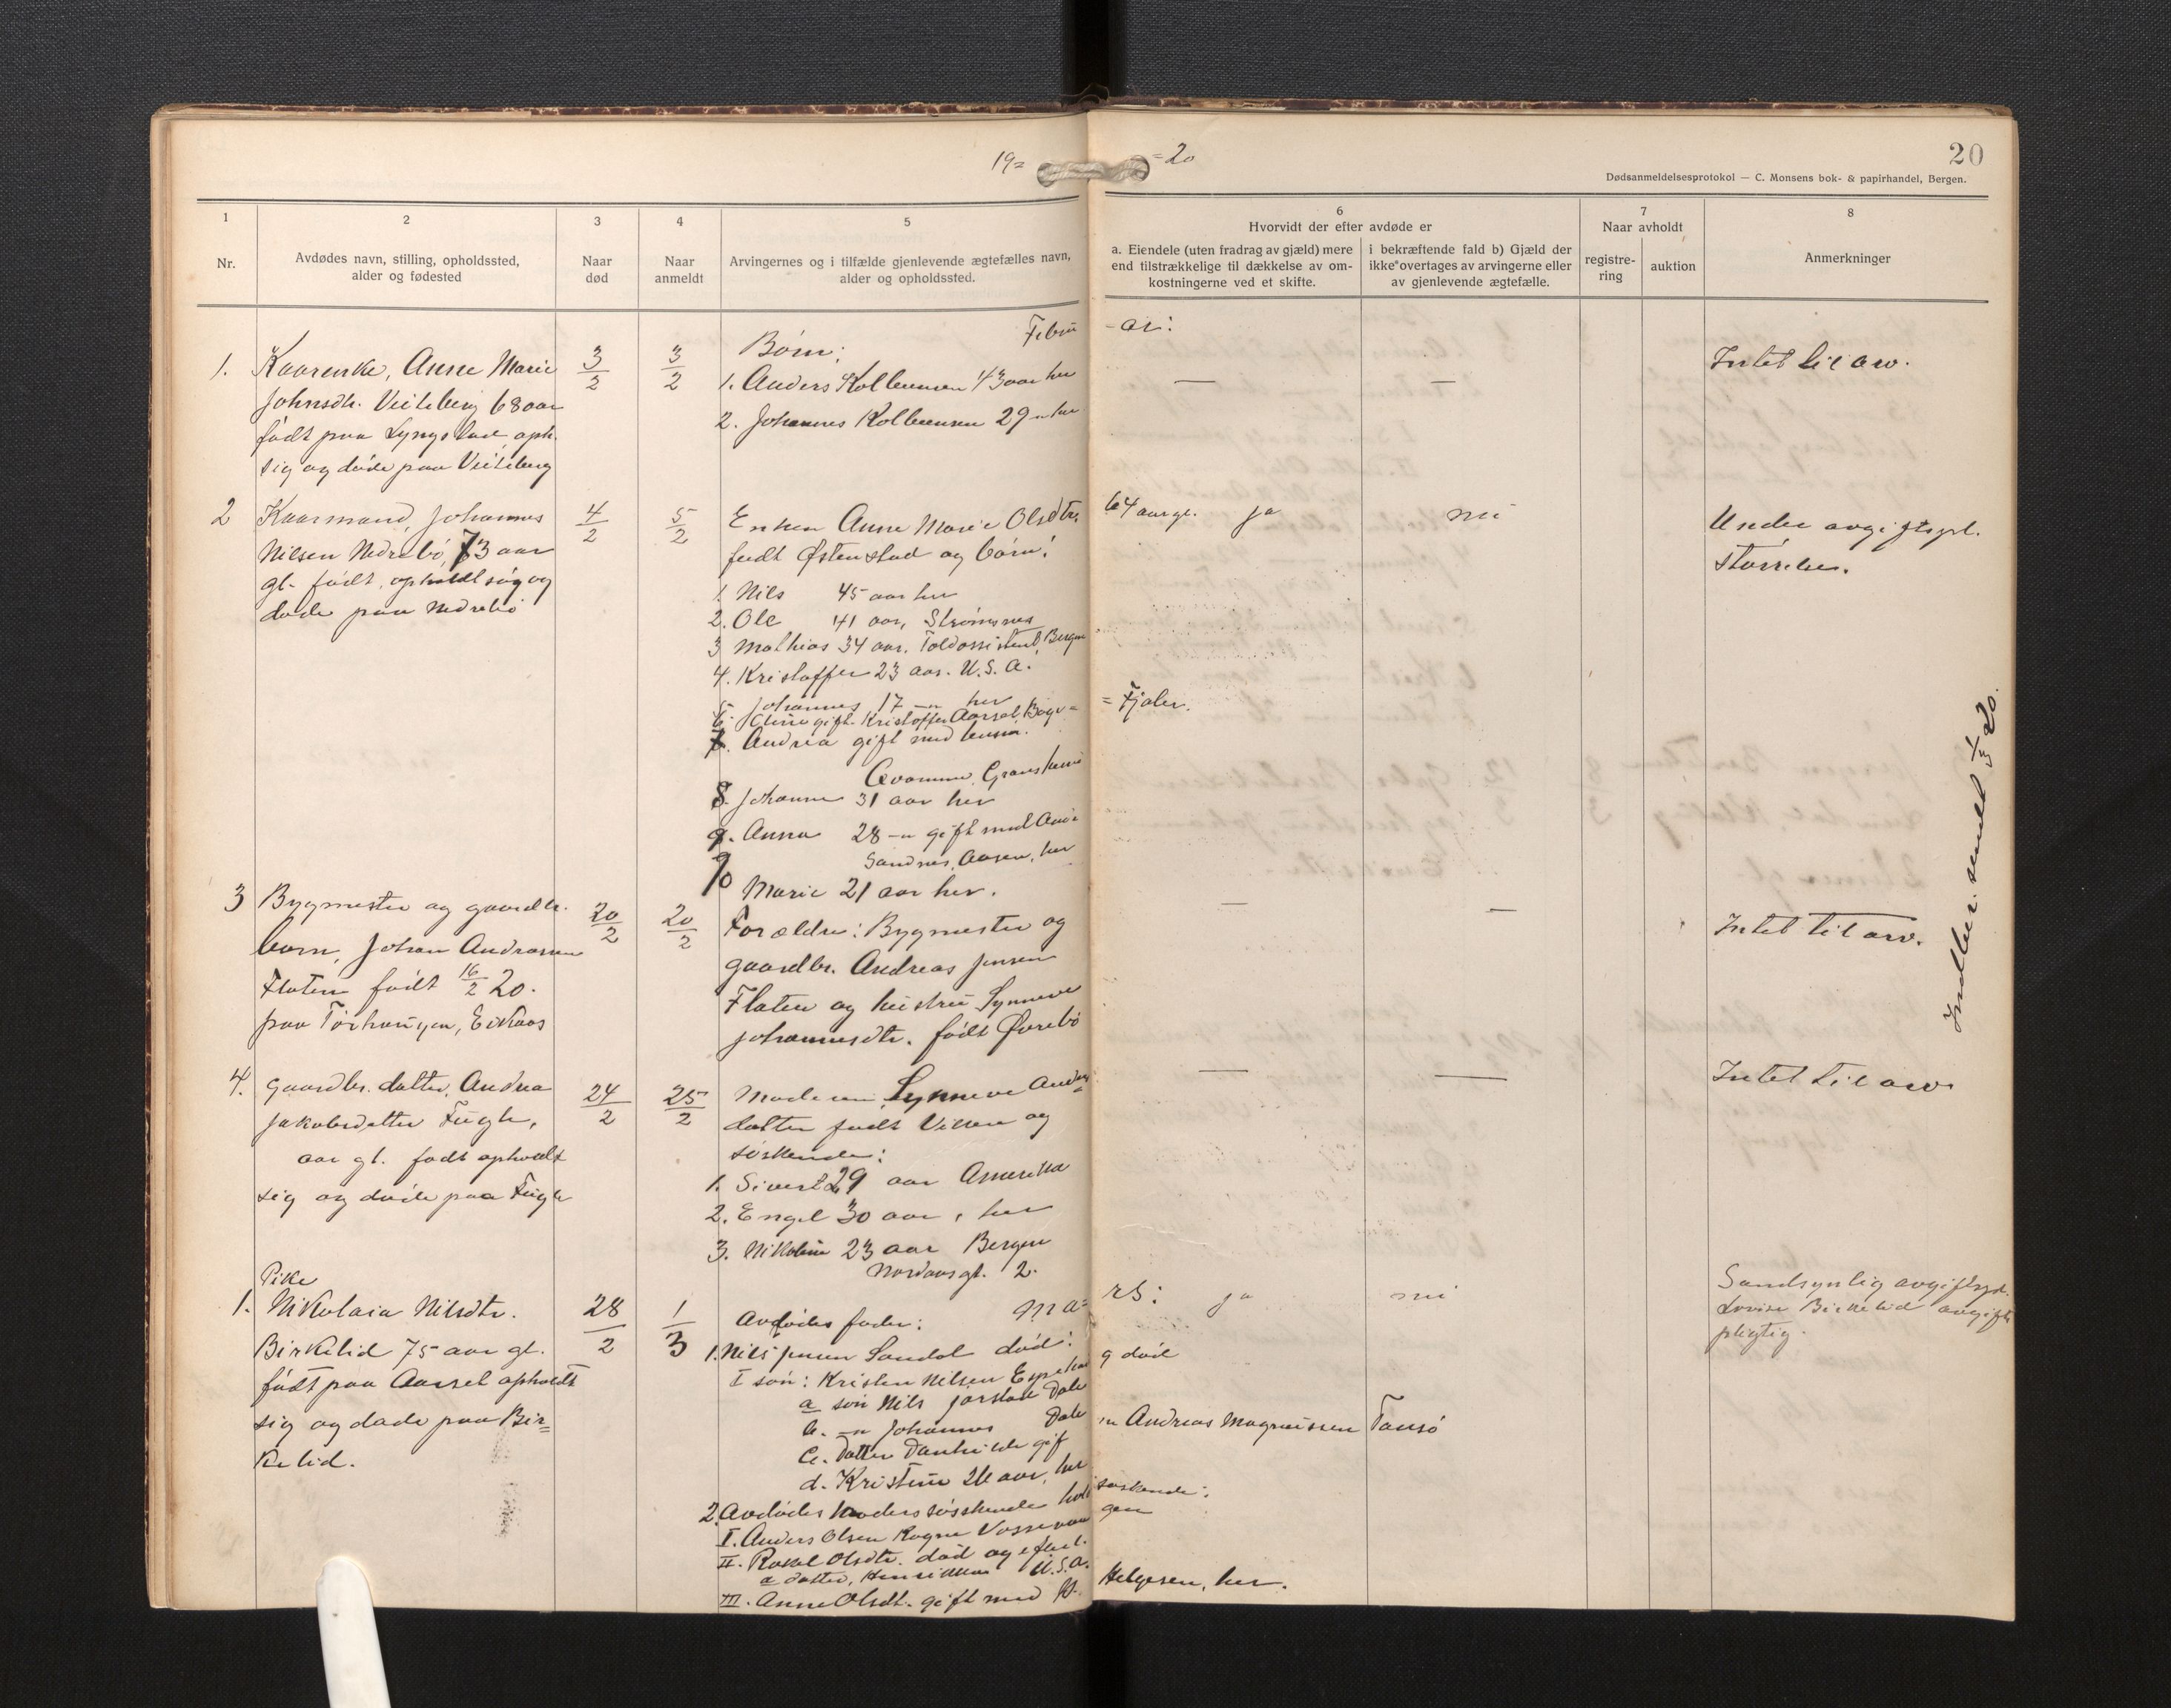 19= =20
20
Dødsanmeldelsesprotokol — C. Monsens bok- & papirhandel, Bergen.
1
Nr.
2
Avdødes navn, stilling, opholdssted,
alder og fødested
3
Naar
død
4
Naar
anmeldt
5
Arvingernes og i tilfælde gjenlevende ægtefælles navn,
alder og opholdssted.
6
Hvorvidt der efter avdøde er
a. Eiendele (uten fradrag av gjæld) mere
end tilstrækkelige til dækkelse av om-
kostningerne ved et skifte.
i bekræftende fald b) Gjæld der
ikke overtages av arvingerne eller
av gjenlevende ægtefælle.
7
Naar avholdt
registre-
ring
auktion
8
Anmerkninger
Febru -ar:
1.
Kaarenke, Anne Marie
Johnsdtr. Veiteberg 68 aar
født paa Lyngstad, oph.
sig og døde paa Veiteberg
3/2
3/2
Børn:
1. Anders Kolbeensen 43 aar her
2. Johannes Kolbeensen 29 -" her
— —
Intet til arv.
2
Kaarmand, Johannes
Nilsen Nedrebø, 73 aar
gl. født, opholdt sig og
døde paa Nedrebø
4/2
5/2
Enken Anne Marie Olsdtr. 64 aar gl.
født Østenstad og børn:
1. Nils 45 aar her
2. Ole 41 aar, Strømsnes
3 Mathias 34 aar. Toldassistent, Bergen
4. Kristoffer 23 aar. U.S.A.
5 Johannes 17 -" her
6. gift. Kristoffer Aarset, =Fjaler.
7. Andrea gift med
8. Johanne 31 aar her
9. Anna 28 -" gift med
Sandnes, Aasen, her
10
Marie 21 aar her.
ja
nei
Under avgiftspl.
størrelse.
3
Bygmester og gaardbr.
barn, Johan Andreassen
Flaten født 16/2 20.
paa Eikaas
20/2
20/2
Forældre: Bygmester og
gaardbr. Andreas Jensen
Flaten og hustru Synneve
Johannesdtr. født Øvrebø
— —
Intet til arv.
4.
Gaardbr. datter, Andrea
Jakobsdatter Fugle,
aar gl. født opholdt
sig og døde paa Fugle
24/2
25/2
Moderen Synneve Anders=
datter født Viken og
søskende:
1. Sivert 29 aar Amerika
2. Engel 30 aar, her
3. Nikoline 23 aar Bergen
gt. 2.
— —
Intet til arv
Indber. sendt 1/3 20.
Ma= rs:
1.
Pike
Nikolaia Nilsdtr.
Birkelid 75 aar gl.
født paa Aarset opholdt
sig og døde paa Bir=
kelid.
28/2
1/3
Avdødes fader:
1. Nils Jensen Sandal død:
I søn: Kristen Nilsen død
a søn Nils Dale
b. -" Johannes Dale
c. Datter gift Andreas Magnussen Tansø
d. Kristine 26 aar, her
2. Avdødes moders søskende søskende:
I. Anders Olsen Rogne
II. Rakel Olsdtr. død og efterl.
a datter, U.S.A.
III. Anne Olsdt. gift med Helgesen, her.
ja
nei
Sandsynlig avgiftspl.
Lovise Birkelid avgifts
pligtig.